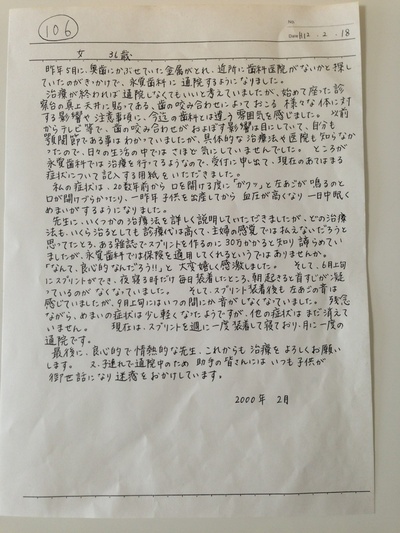 106
2000年12.2.18
女 36歳
昨年5月に、奥歯にかぶせていた金属がとれ、近所に歯科医院がないかと探し
ていたのがきっかけで、永賀歯科に通院するようになりました。
治療が終われば通院しなくてもいいと考えていましたが、始めて座った診
察台の真上天井に貼ってある、歯の咬み合わせによっておこる様々な体に対
する影響や注意事項に、今迄の歯科とは違う雰囲気を感じました。以前
からテレビ等で、歯の咬み合せがおよぼす影響は目にしていて、自分も
顎関節である事はわかっていましたが、具体的な治療法や医院も知らなか
ったので、日々の生活の中ではさほど気にしていませんでした。ところが
永賀歯科では治療を行ってるようなので、受付に申し出て、現在のあてはまる
症状について記入する用紙をいただきました。
私の症状は、20数年前から口を開ける度に「ガクッ」と左あごが鳴るのと
口が開けづらかったり、一昨年子供を出産してから血圧が高くなり一日中眠く
めまいがするようになりました。
先生に、いくつかの治療法を詳しく説明していただきましたが、どの治療
法も、いくら治るとしても診療代は高くて、主婦の感覚では払えないだろうと
思ってたところ、ある雑誌でスプリントを作るのに30万かかると知り諦らめてい
ましたが、永賀歯科では保険を適用してくれるというではありませんか。
「なんて、良心的なんだろう!!」と大変嬉しく感激しました。 そして、6月上旬
にスプリントができ、夜寝る時だけ毎日装着したところ、朝起きると首すじが凝
っているのがなくなっていました。 そして、スプリント装着後も左あごの音は
感じていましたが、9月上旬にはいつの間にか音がしなくなっていました。残念
ながら、めまいの症状は少し軽くなったようですが、他の症状はまだ消えて
いません。 現在は、スプリントを週に一度装着して寝ており、月に一度の
通院です。
最後に、良心的で情熱的な先生、これからも治療をよろしくお願い
します。 又、子連れで通院中のため助手の皆さんにはいつも子供が
御世話になり迷惑をおかけしています。
2000年 2月